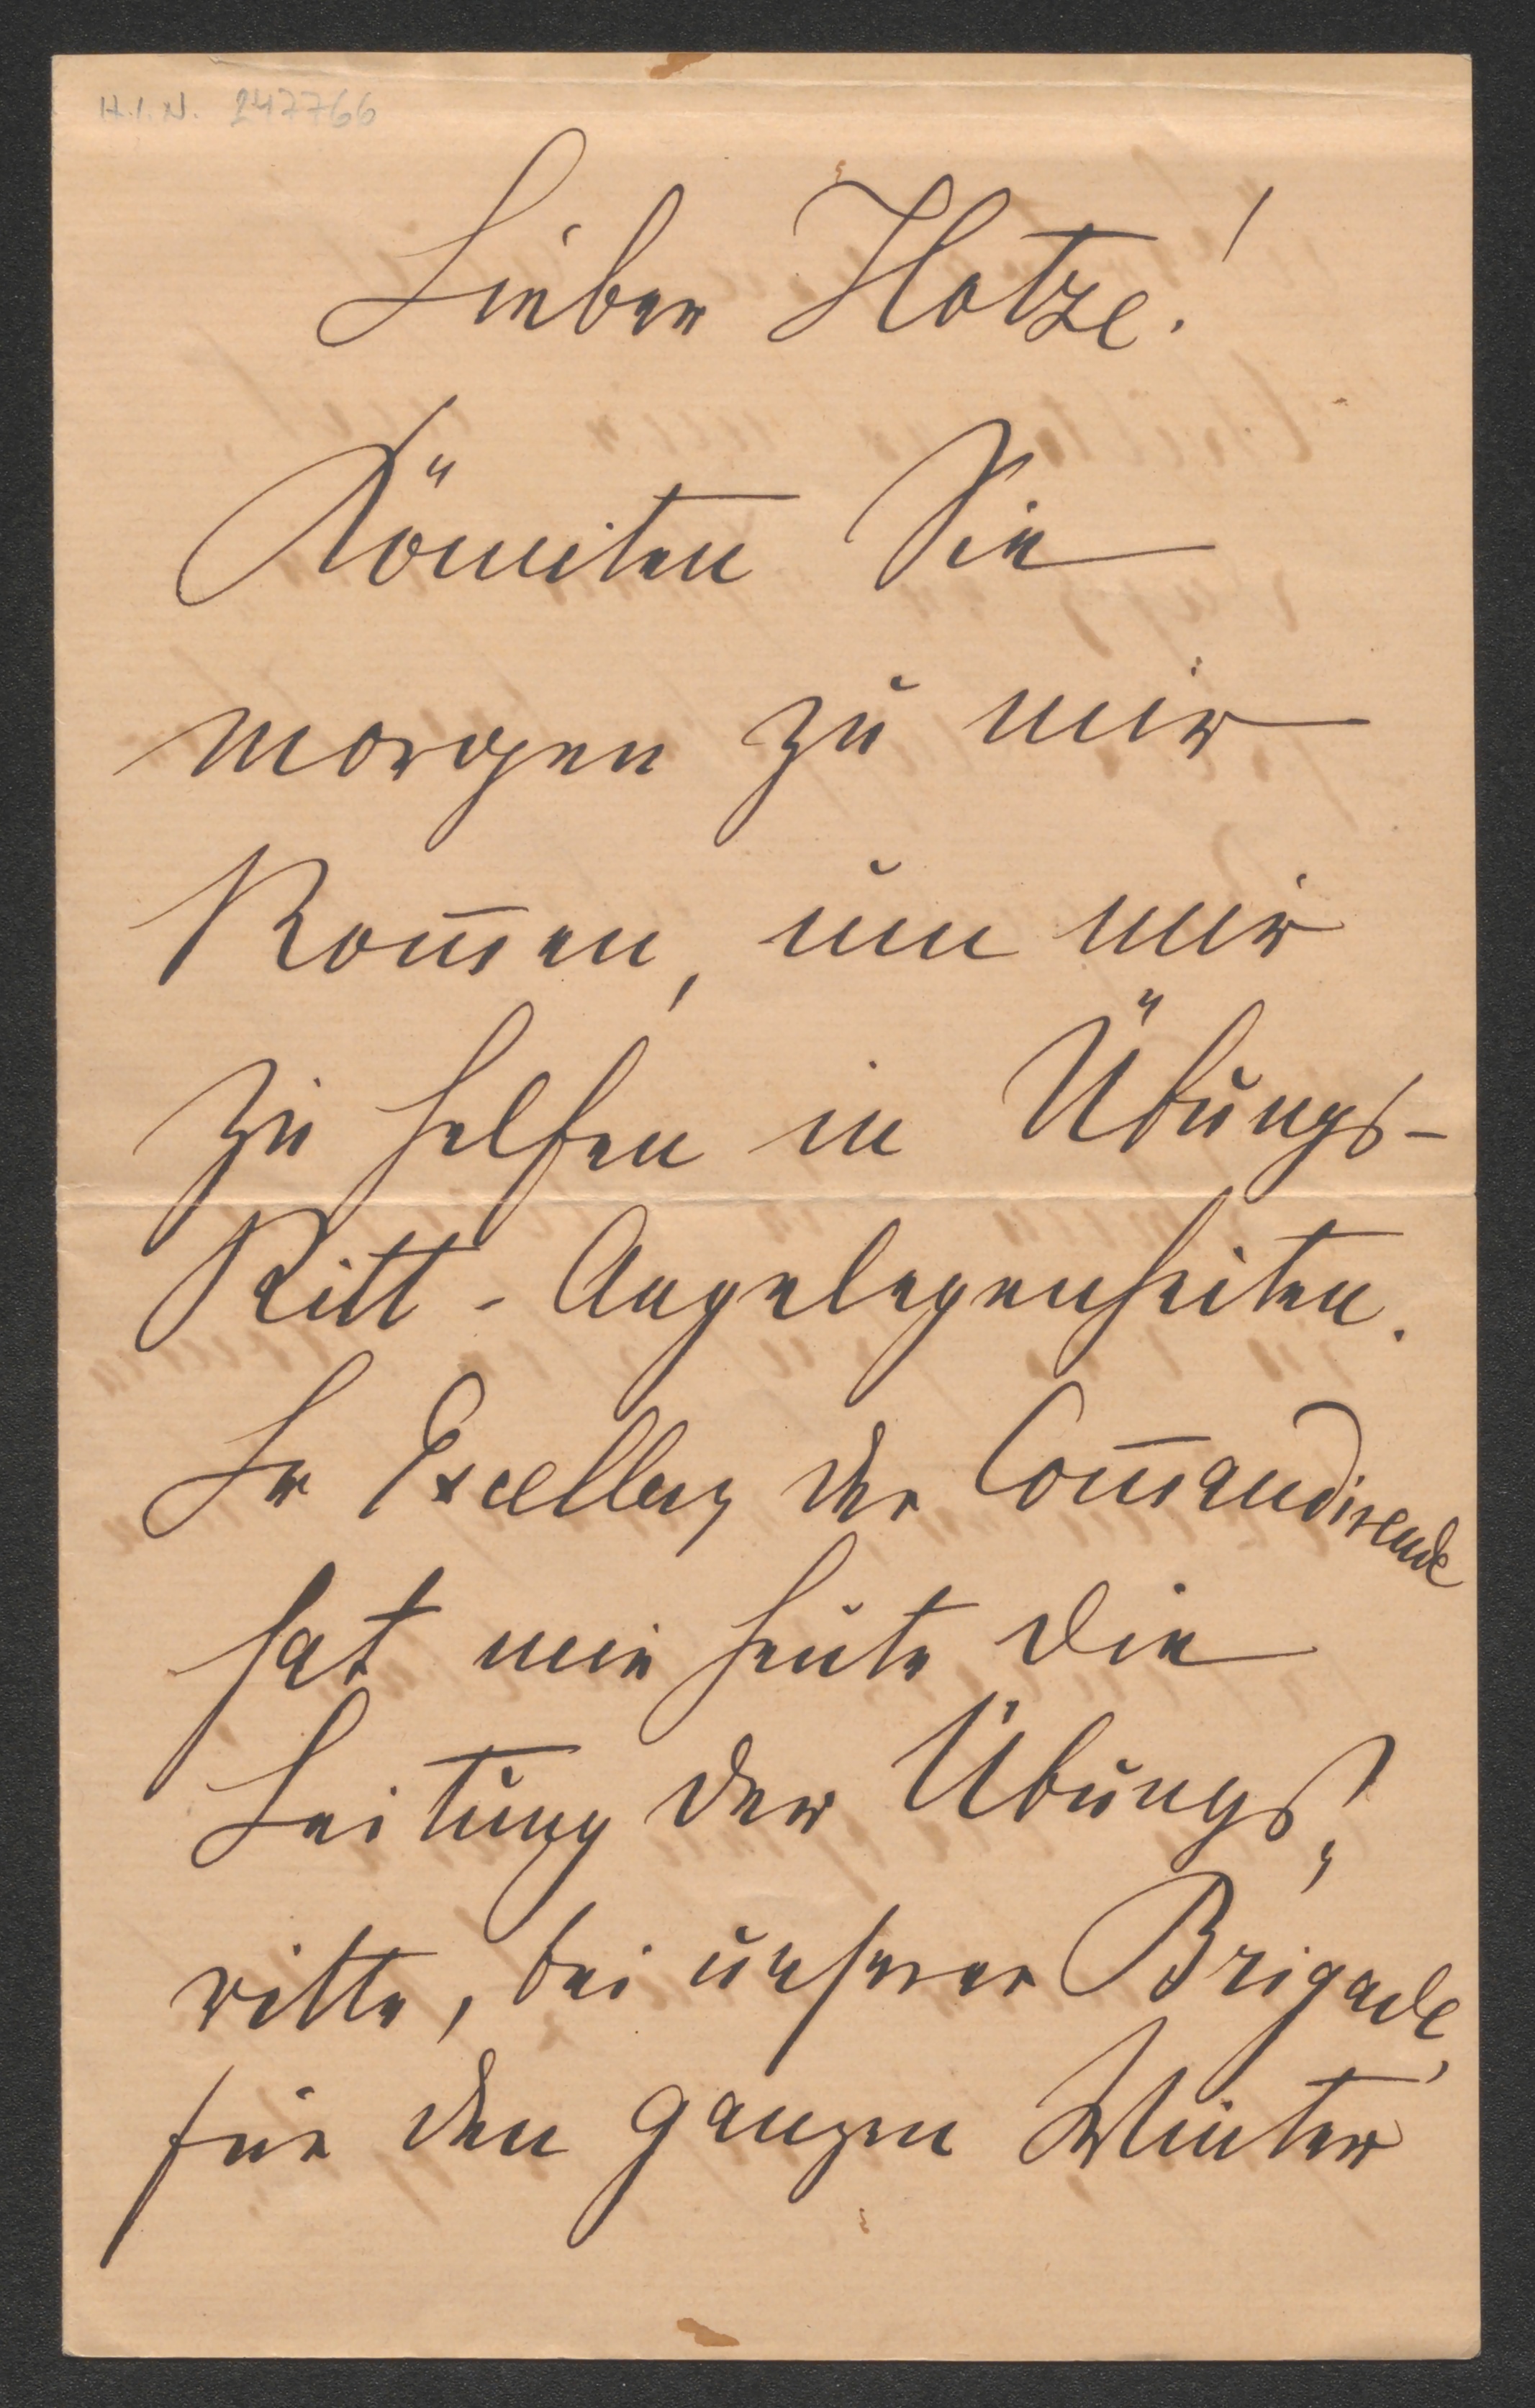 H.I.N. 247766
Lieber Hotze!
Könnten Sie
morgen zu mir
Kom̅en, um mir
zu helfen in Übungs-
Ritt-Angelegenheiten.
Sr Excellenz der Com̅andirende
hat mir heute die
Leitung der Übungs,
ritte, bei unserer Brigade,
für den ganzen Winter